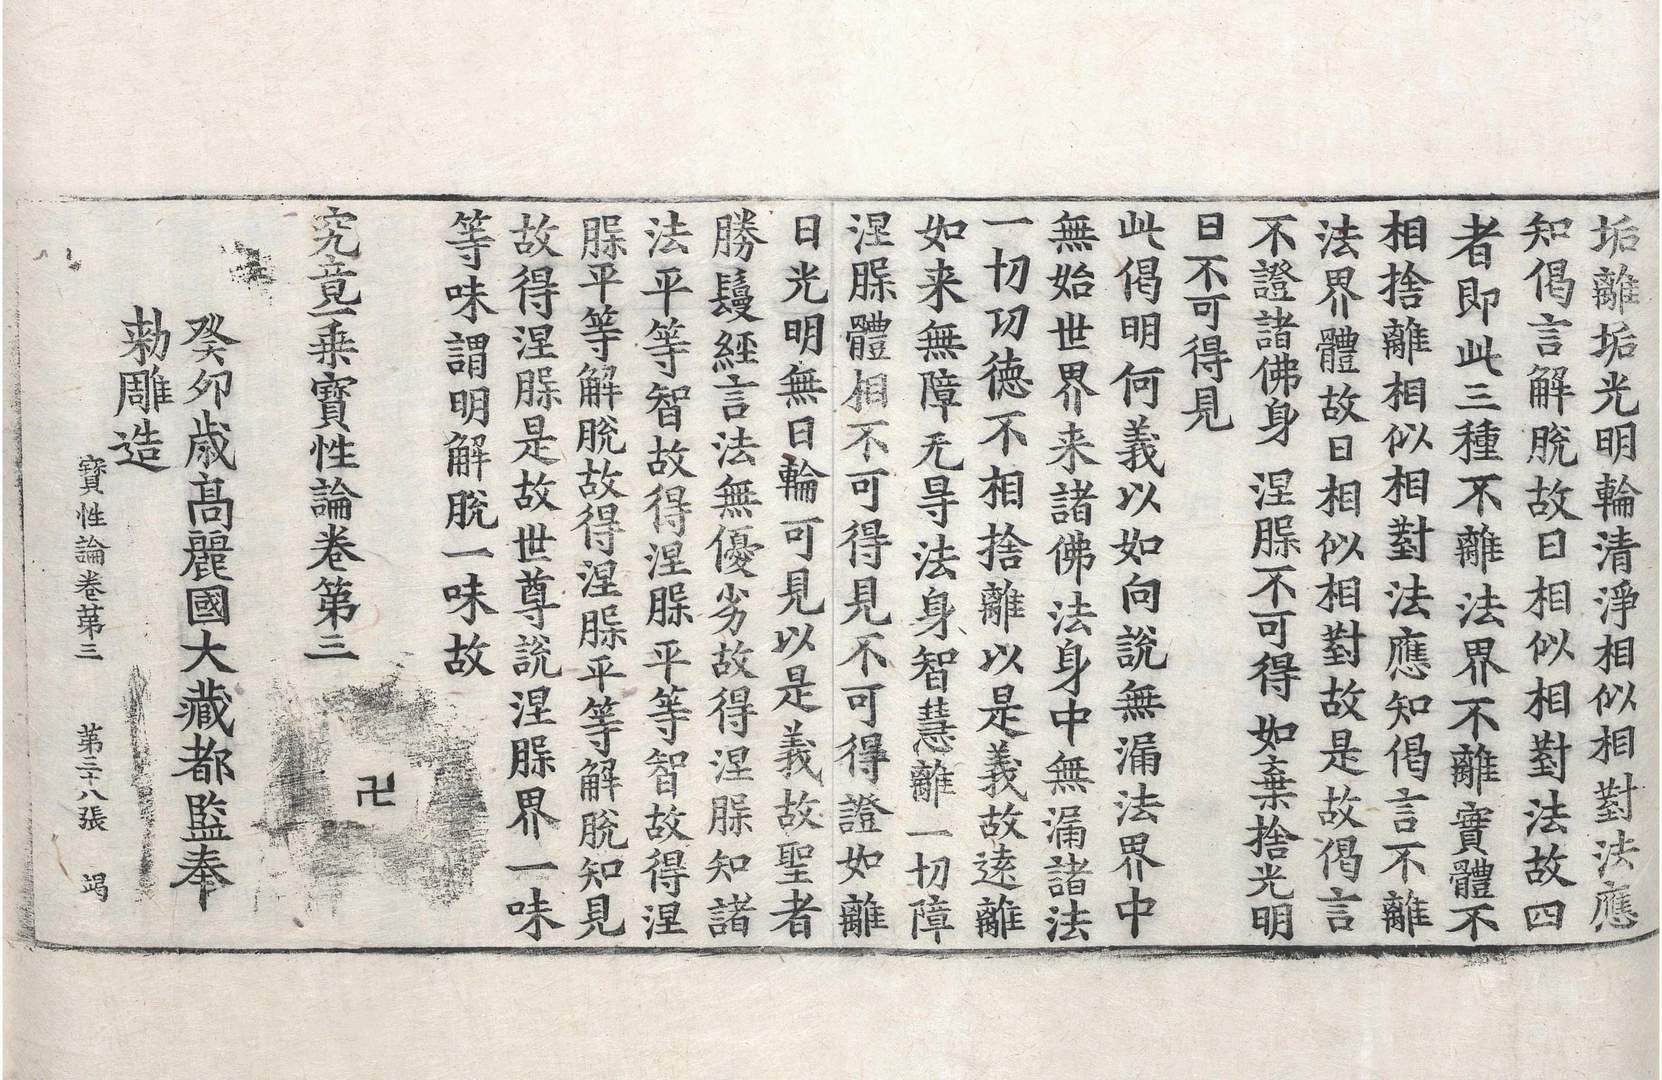 垢離垢光明輪清淨相似相對法應
知偈言解脫故日相似相對法故四
者即此三種不離法界不離實體不
相捨離相似相對法應知偈言不離
法界體故日相似相對故是故偈言
不證諸佛身 涅槃不可得 如棄捨光明
日不可得見
此偈明何義以如向說無漏法界中
無始世界来諸佛法身中無漏諸法
一切功德不相捨離以是義故遠離
如来無障无㝵法身智慧離一切障
涅槃體相不可得見不可得證如離
日光明無日輪可見以是義故聖者
勝鬘經言法無優劣故得涅槃知諸
法平等智故得涅槃平等智故得涅
槃平等解脫故得涅槃平等解脫知見
故得涅槃是故世尊說涅槃界一味
等味謂明解脫一味故
究竟一乗寶性論卷第三
卍
癸卯歳高麗國大藏都監奉
勅雕造
寶性論卷苐三 第三十八張 竭